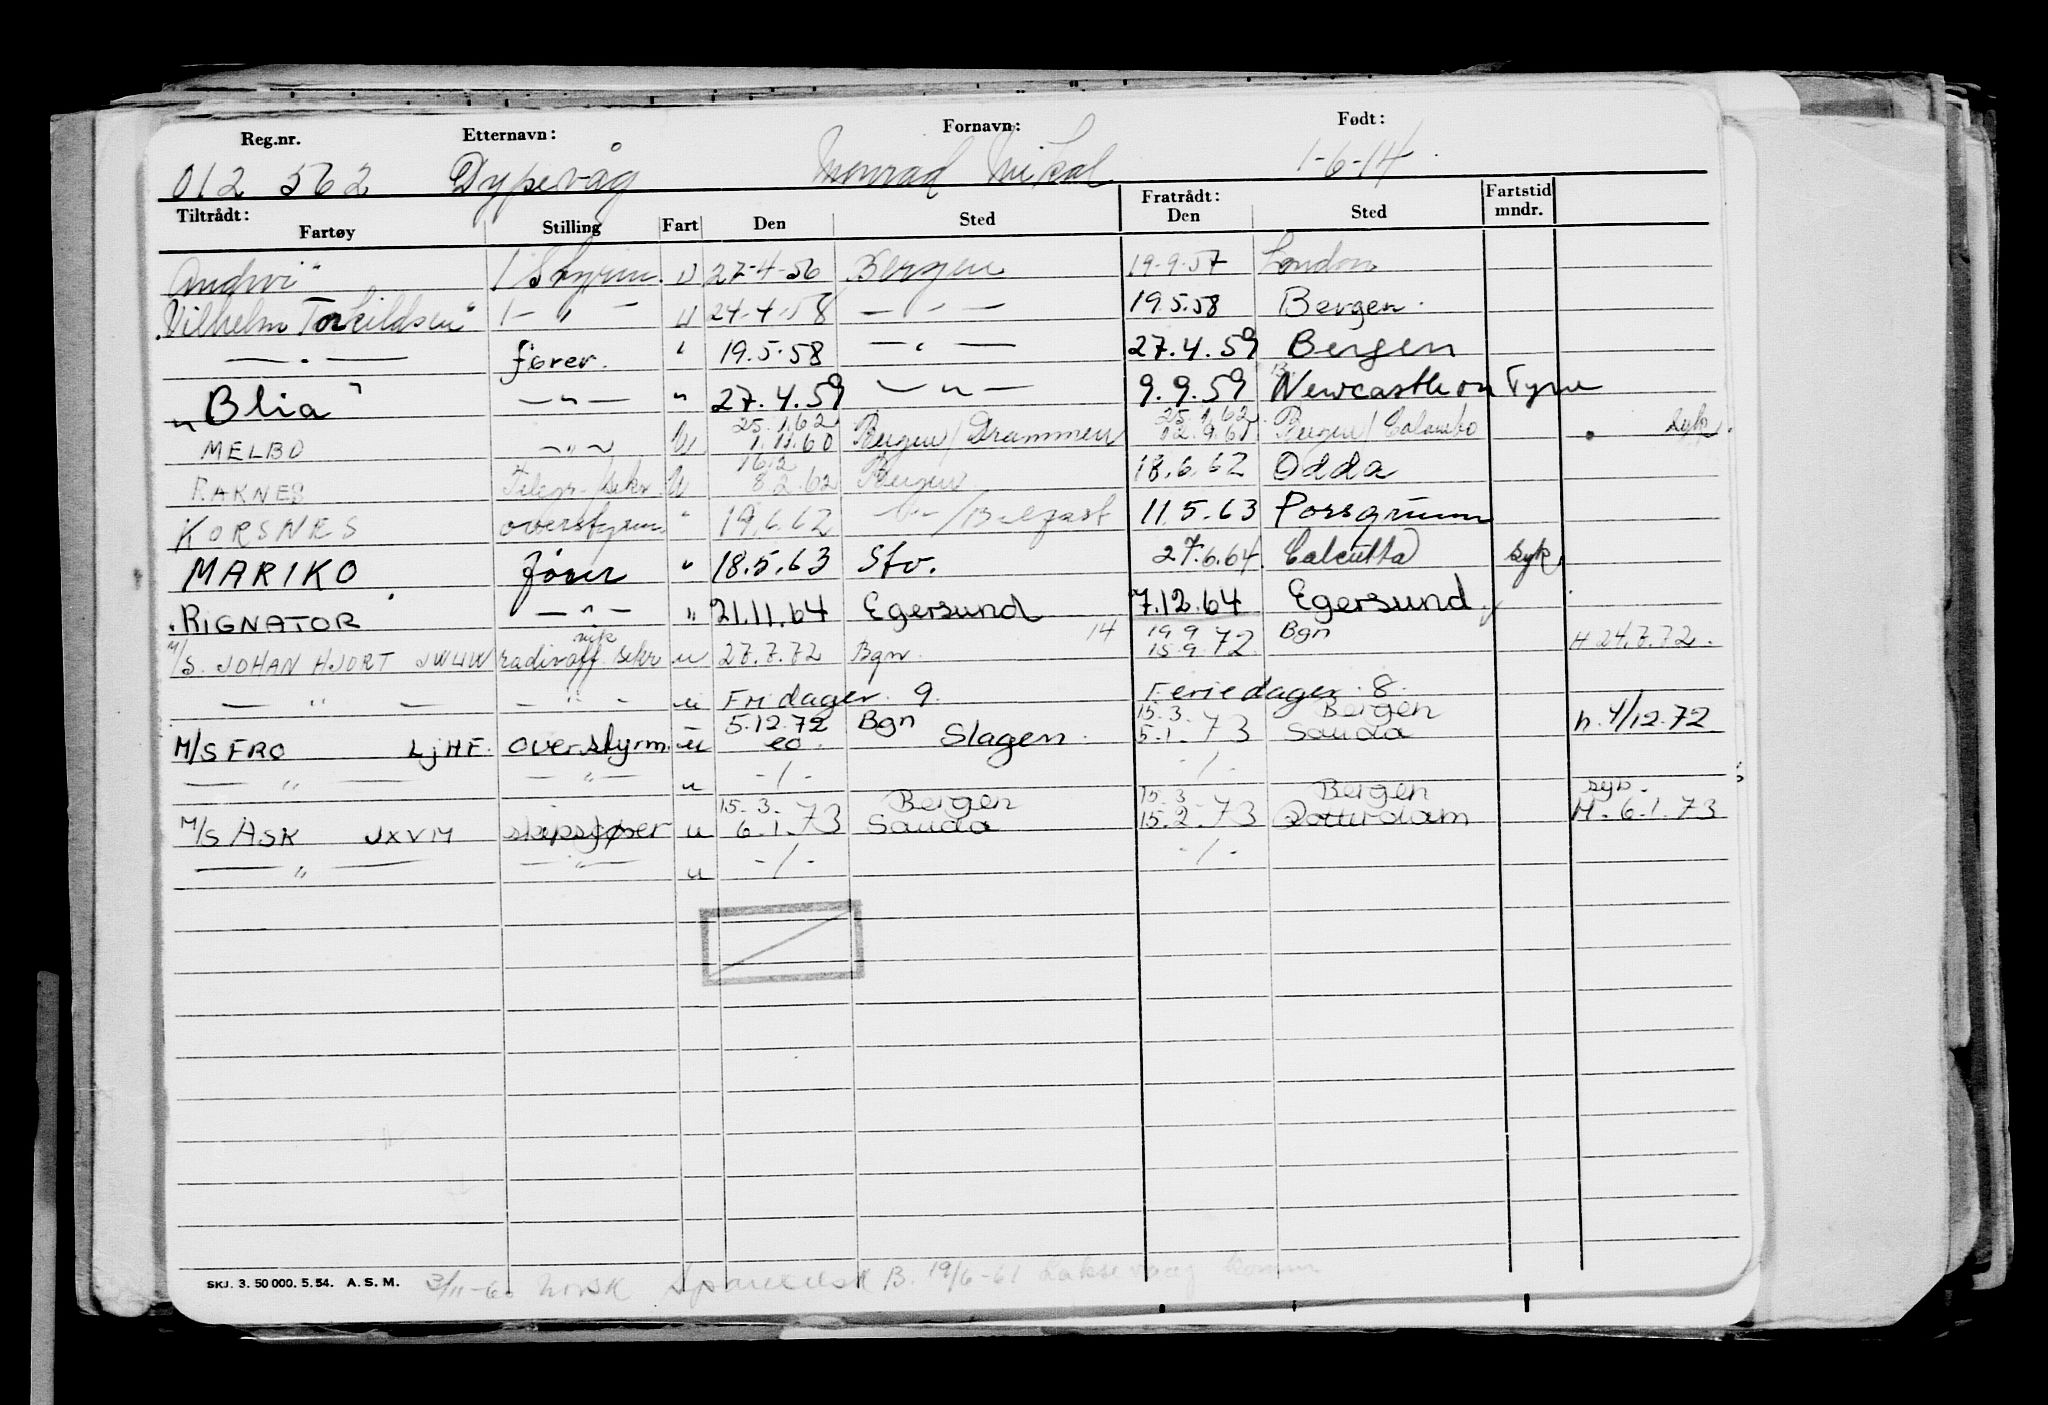 Reg.nr. Etternavn: Fornavn: Født:
012 562 Dypevåg Monrad Mikal 1-6-14
Tiltrådt: Fratrådt: Fartstid
Fartøy Stilling Fart Den Sted Den Sted mndr.
Andwi" 1 Styrm. U 27-4-56 Bergen 19-9-57 London
"Vilhelm Torkildsen" 1 - " - U 24-4-58 — " — 19.5.58 Bergen.
— " — fører. " 19.5.58 — " — 27.4.59 Bergen
"Blia" — " — " 27.4.59 — " — 9.9.59 Newcastle on Tyne
25.1.62 25.1.62
MELBO — " — U 1.11.60 Bergen/Drammen 12.9.61 Bergen/Colombo syk.
16.2
RAKNES Telegr./sekr U 8.2.62 Bergen 18.6.62 Odda
KORSNES overstyrm " 19.6.62 — " — /Belfast 11.5.63 Porsgrunn
MARIKO fører " 18.5.63 Stv. 27.6.64. Calcutta syk
"RIGNATOR — " — " 21.11.64 Egersund 7.12.64 Egersund
14 19 9 Bgn
M/S. JOHAN HJORT JWUW radiooff. sekr u 27.7.72 Bgn. 15.9.72 H 24.7.72.
— " — — " — u Fridager. 9. Feriedager. 8.
5.12.72 Bgn 15.3. Bergen
M/S FRO LJHF. overstyrm. u eo. Slagen. 5.1.73 Sauda h. 4/12.72
— " — — " — u -/- -/-
15.3. Bergen 15.3. Bergen
M/S ASK JXVM skipsfører u 6.1.73 Sauda 15.2.73 Rotterdam H. 6.1.73
— " — — " — u -/- -/-
SKJ. 3. 50 000. 5. 54. A. S. M. 3/11-60 norsk B. 19/6-61 Laksevaag komm